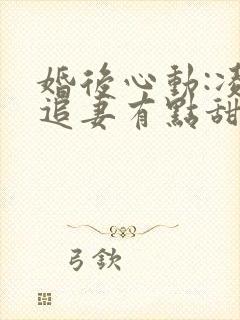 婚後心動:凌
追妻有點甜
弓欽